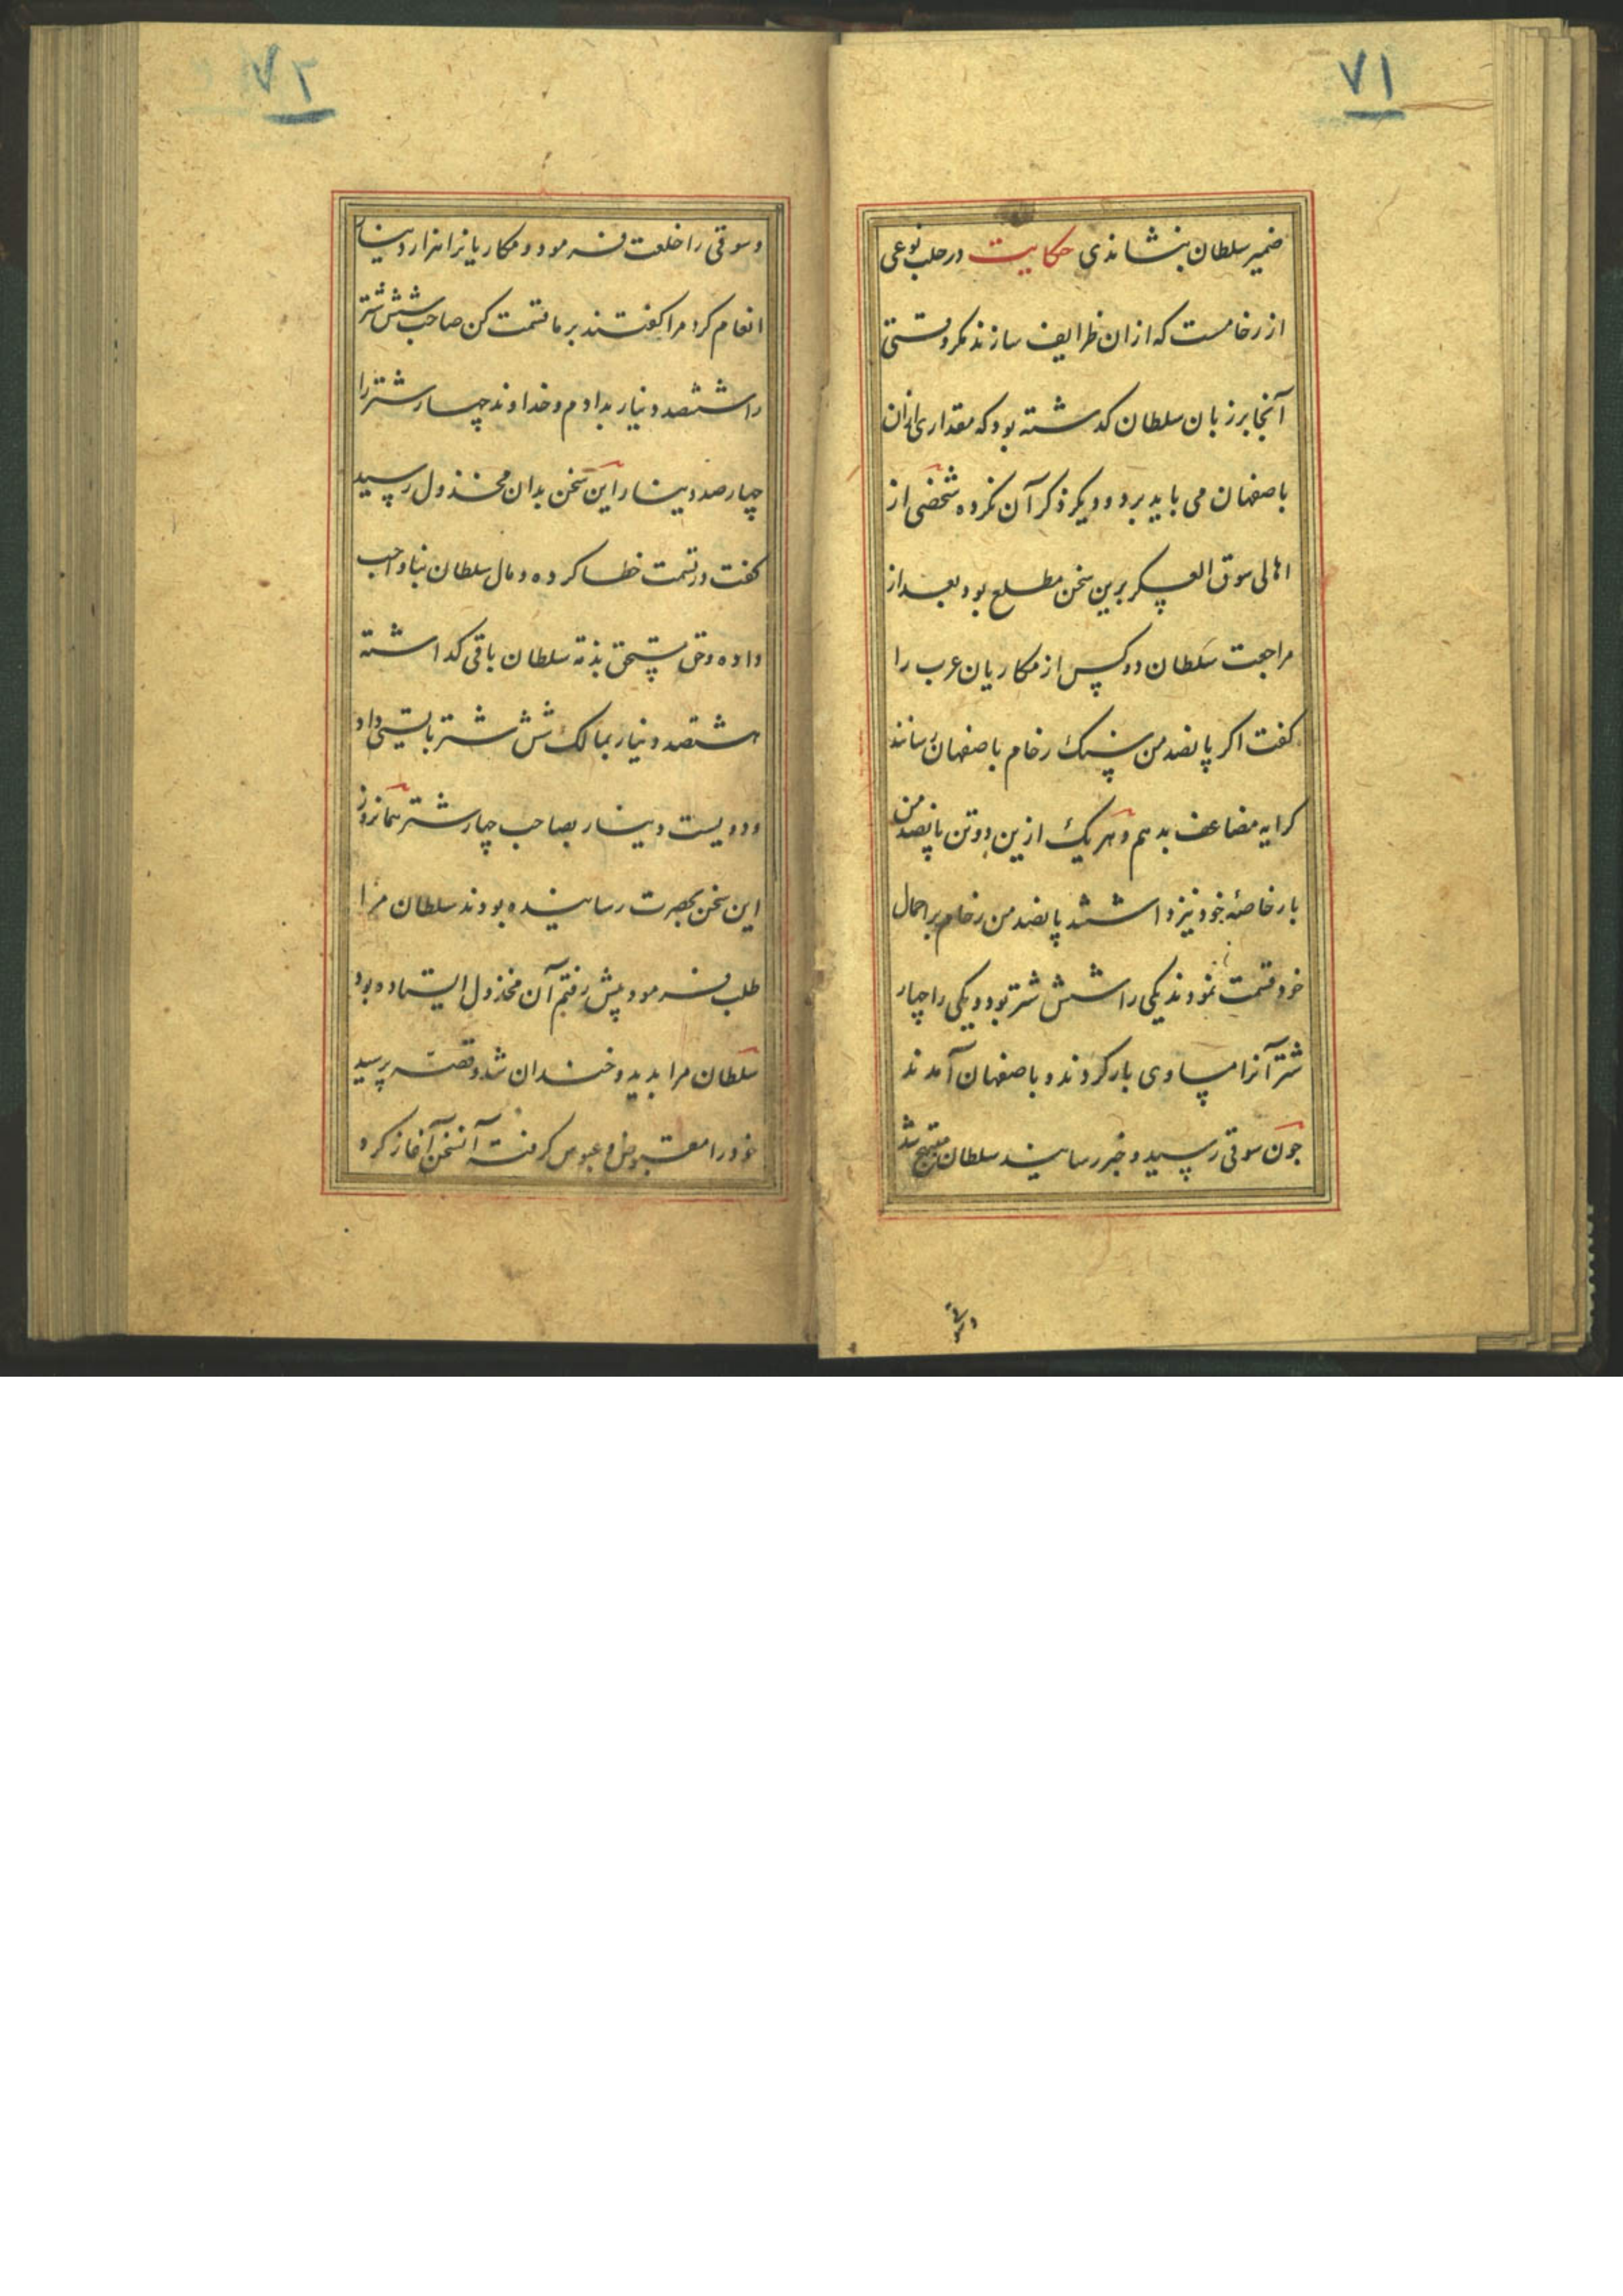 ۷۱
ضمیر سلطان بنشاندی حکایت در حلب نوعی
از رخامست که ازان ظرایف سازند مکر وقتی
آنجا بر زبان سلطان کدشته بود که مقداری ازان
باصفهان می باید برد و دیکر ذکر آن نکرده شخصی از
اهالی سوق العسکر برین سخن مطلع بود بعد از
مراجعت سلطان دو کس از مکاریان عرب را
کفت اکر پانصد من سنک رخام باصفهان رسانند
کرایه مضاعف بدهم و هر یک ازین دو تن پانصد من
بار خاصهٔ خود نیز داشتند پانصد من رخام بر احمال
خود قسمت نمودند یکی را شش شتر بود و یکی را چهار
شتر آنرا مساوی بار کردند و باصفهان آمدند
جون سوقی رسید و خبر رسانید سلطان مبتهج شد
وسوقی
۷۲
وسوقی را خلعت فرمود و مکاریانرا هزار دینار
انعام کرد مرا کفتند بر ما قسمت کن صاحب شش شتر
را ششصد دینار بدادم و خداوند چهار شتر را
چهارصد دینار این سخن بدان مخذول رسید
کفت در قسمت خطا کرده و مال سلطان بناواجب
داده و حق مستحق بذمه سلطان باقی کداشته
هشتصد دینار بمالک شش شتر بایستی داد
و دویست دینار بصاحب چهار شتر همانروز
این سخن بحضرت رسانیده بودند سلطان مرا
طلب فرمود پیش رفتم آن مخذول ایستاده بود
سلطان مرا بدید و خندان شد و قصه پرسید
خود را مقبوض و عبوس کرفته آن سخن آغاز کرد